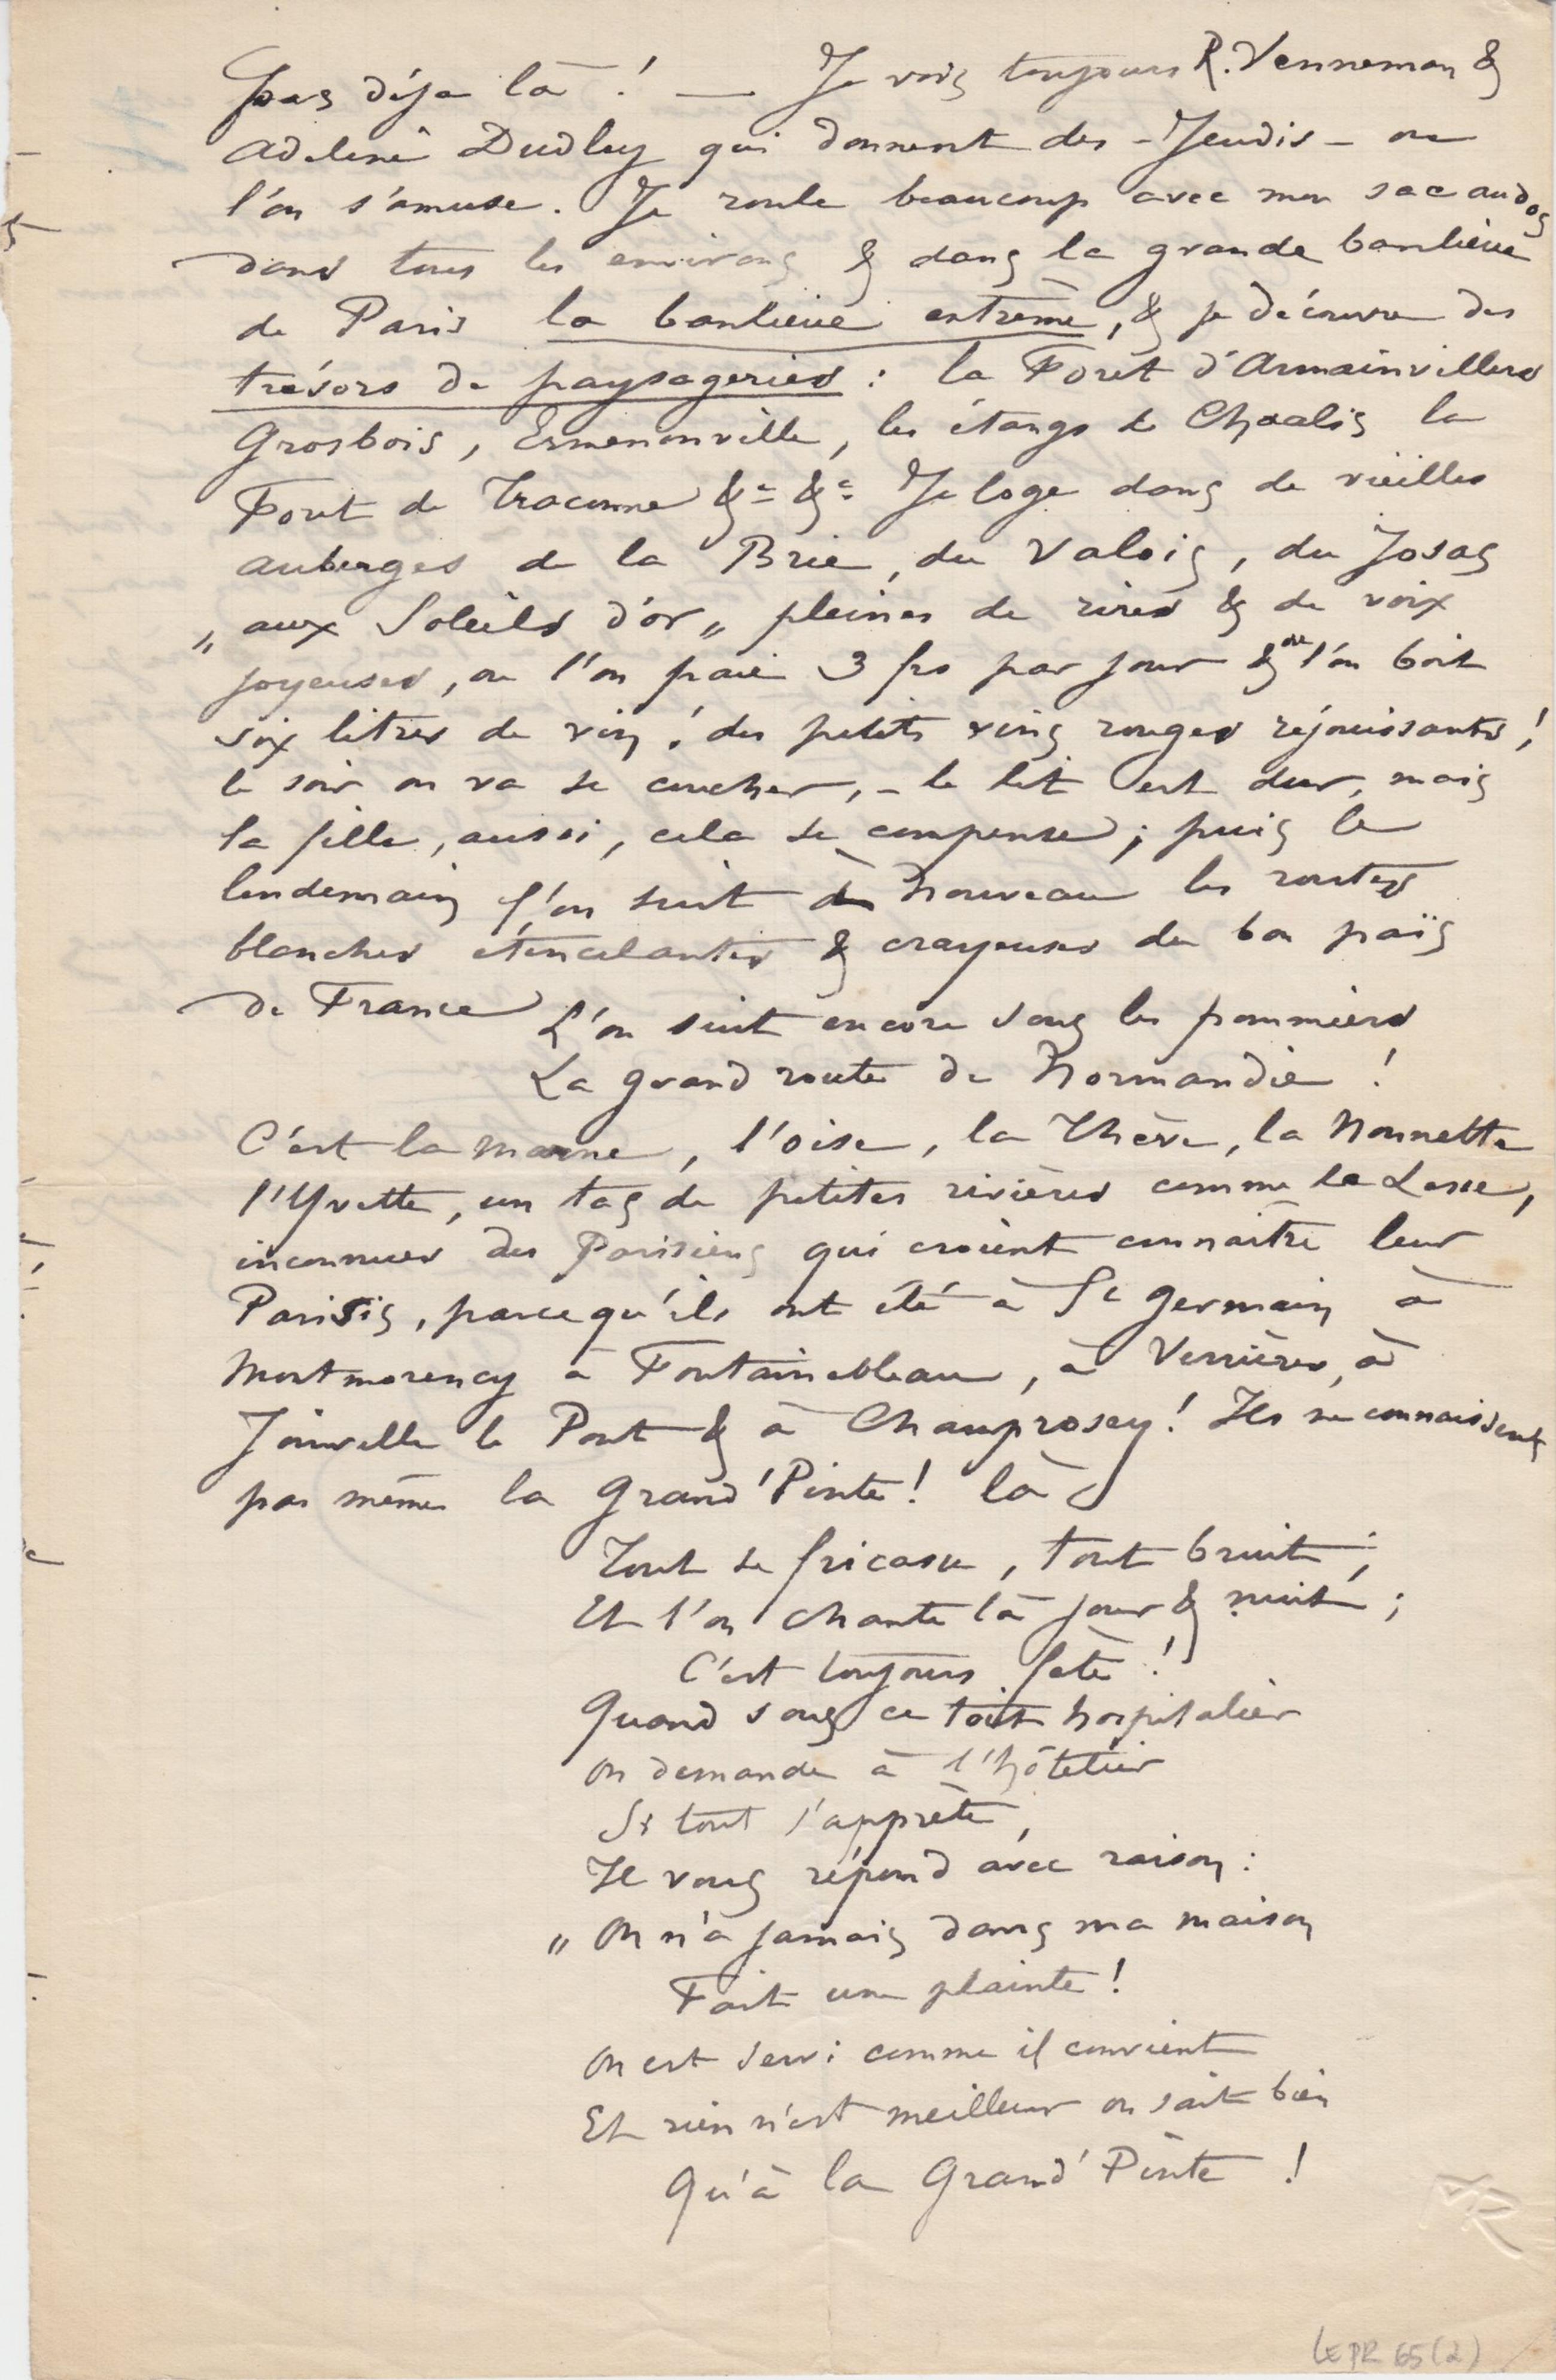 pas déja là ! — Je vois toujours R. Venneman &
Adeline Dudlay qui donnent des – Jeudis – ou
l'on s'amuse. Je roule beaucoup avec mon sac au dos
dans tous les environs & dans la grande banlieue
de Paris la banlieue extrême, & je découvre des
trésors de paysageries : la Foret d'Armainvillers
Grosbois, Ermenonville, les étangs de Chaalis la
Foret de Traconne &a &a Je loge dans de vieilles
auberges de la Brie, du Valois, du Josas
„ aux Soleils d'or „ pleines de rires & de voix
joyeuses, ou l'on paie 3 frs par jour & ou l'on boit
six litres de vin ! des petits vins rouges réjouissants !
le soir on va se coucher, – le lit est dur, mais
la fille, aussi, cela se compense ; puis le
lendemain l'on suit de nouveau les routes
blanches étincelantes & crayeuses du bon païs
de France
L'on suit encore sous les pommiers
La grand route de Normandie !
C'est la Marne, l'Oise, la Thève, la Nonnette
l'Yvette, un tas de petites rivières comme la Lesse,
inconnues des Parisiens qui croient connaitre leur
Parisis, parce qu'ils ont été à St Germain à
Montmorency à Fontainebleau, à Verrières, à
Joinville le Pont & à Champrosay ! Ils ne connaissent
pas même la Grand' Pinte ! là
Tout se fricasse, tout bruit ;
Et l'on chante là jour & nuit ;
C'est toujours fête !
Quand sous ce toit hospitalier
On demande à l'hôtelier
Si tout s'apprête,
Il vous répond avec raison :
„ On n'a jamais dans ma maison
Fait une plainte !
On est servi comme il convient
Et rien n'est meilleur on sait bien
Qu'à la Grand' Pinte !
MR
LEPR 65(2)